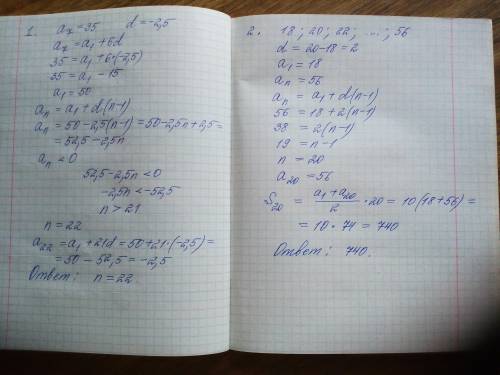 1. a₇ = 35 d = -2,5
a₇ = a₁ + 6d
35 = a₁ + 6·(-2,5)
35 = a₁ - 15
a₁ = 50
aₙ = a₁ + d(n-1)
aₙ = 50 - 2,5(n-1) = 50 - 2,5n + 2,5 =
= 52,5 - 2,5n
aₙ < 0
52,5 - 2,5n < 0
-2,5n < -52,5
n > 21
n = 22
a₂₂ = a₁ + 21d = 50 + 21·(-2,5) =
= 50 - 52,5 = -2,5
Ответ: n = 22.
2. 18; 20; 22; ...; 56
d = 20 - 18 = 2
a₁ = 18
aₙ = 56
aₙ = a₁ + d(n-1)
56 = 18 + 2(n-1)
38 = 2(n-1)
19 = n-1
n = 20
a₂₀ = 56
S₂₀ = (a₁ + a₂₀)/2 · 20 = 10(18+56) =
= 10·74 = 740
Ответ: 740.